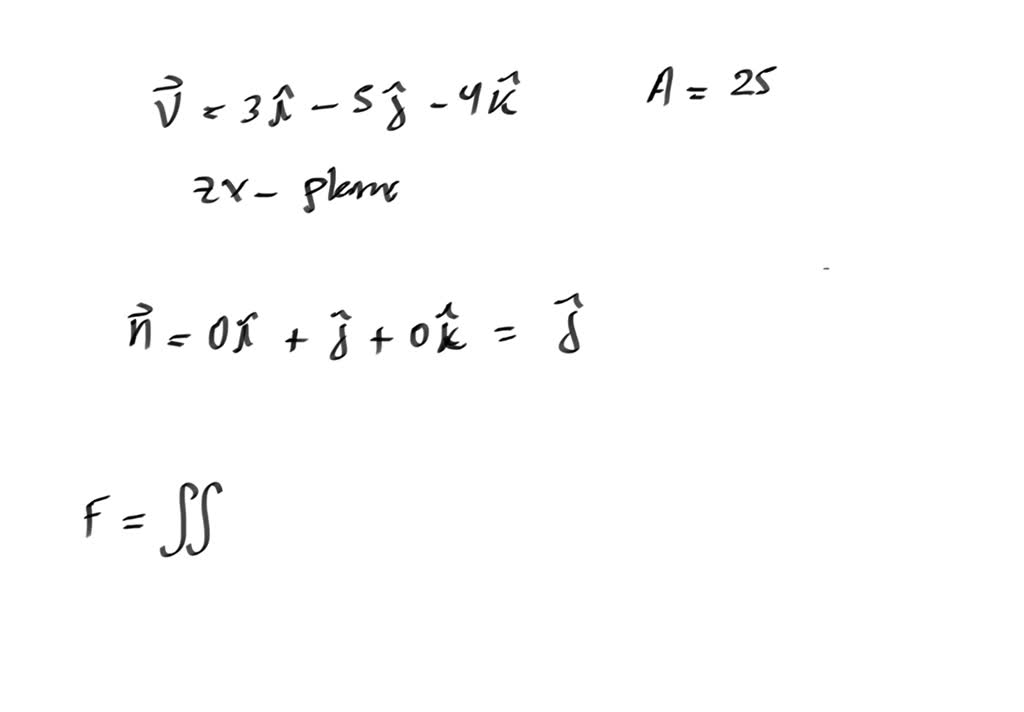 v⃗ = 3î - 5ĵ - 4k̂ A = 25
zx - plane
n⃗ = 0î + ĵ + 0k̂ = ĵ
F = ∬